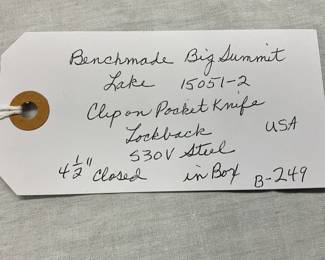 Benchmade Big Summit
Lake 15051-2
Clip on Pocket Knife
Lockback USA
S30V Steel
4 1/2" Closed in Box B-249